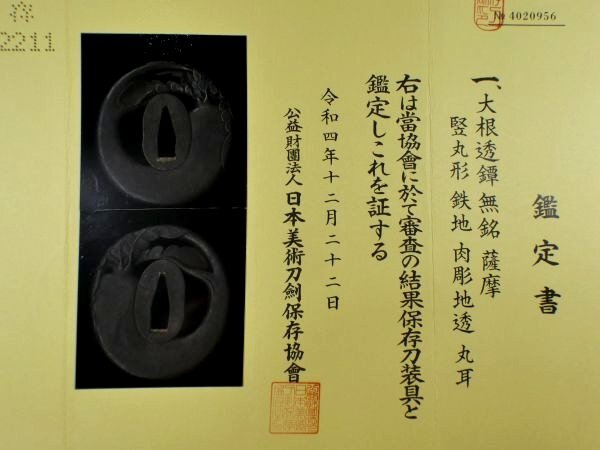 № 4020956
鑑定書
一、大根透鐔 無銘 薩摩
竪丸形 鉄地 肉彫地透 丸耳
右は當協會に於て審査の結果保存刀装具と
鑑定しこれを証する
令和四年十二月二十二日
公益財團法人 日本美術刀劍保存協會
2211